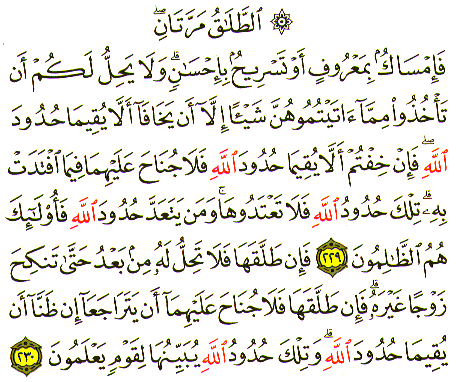 ۞ ٱلطَّلَٰقُ مَرَّتَانِۖ
فَإِمۡسَاكُۢ بِمَعۡرُوفٍ أَوۡ تَسۡرِيحُۢ بِإِحۡسَٰنٖۗ وَلَا يَحِلُّ لَكُمۡ أَن
تَأۡخُذُواْ مِمَّآ ءَاتَيۡتُمُوهُنَّ شَيۡـًٔا إِلَّآ أَن يَخَافَآ أَلَّا يُقِيمَا حُدُودَ
ٱللَّهِۖ فَإِنۡ خِفۡتُمۡ أَلَّا يُقِيمَا حُدُودَ ٱللَّهِ فَلَا جُنَاحَ عَلَيۡهِمَا فِيمَا ٱفۡتَدَتۡ
بِهِۦۗ تِلۡكَ حُدُودُ ٱللَّهِ فَلَا تَعۡتَدُوهَاۚ وَمَن يَتَعَدَّ حُدُودَ ٱللَّهِ فَأُوْلَٰٓئِكَ
هُمُ ٱلظَّٰلِمُونَ ٢٢٩ فَإِن طَلَّقَهَا فَلَا تَحِلُّ لَهُۥ مِنۢ بَعۡدُ حَتَّىٰ تَنكِحَ
زَوۡجًا غَيۡرَهُۥۗ فَإِن طَلَّقَهَا فَلَا جُنَاحَ عَلَيۡهِمَآ أَن يَتَرَاجَعَآ إِن ظَنَّآ أَن
يُقِيمَا حُدُودَ ٱللَّهِۗ وَتِلۡكَ حُدُودُ ٱللَّهِ يُبَيِّنُهَا لِقَوۡمٖ يَعۡلَمُونَ ٢٣٠